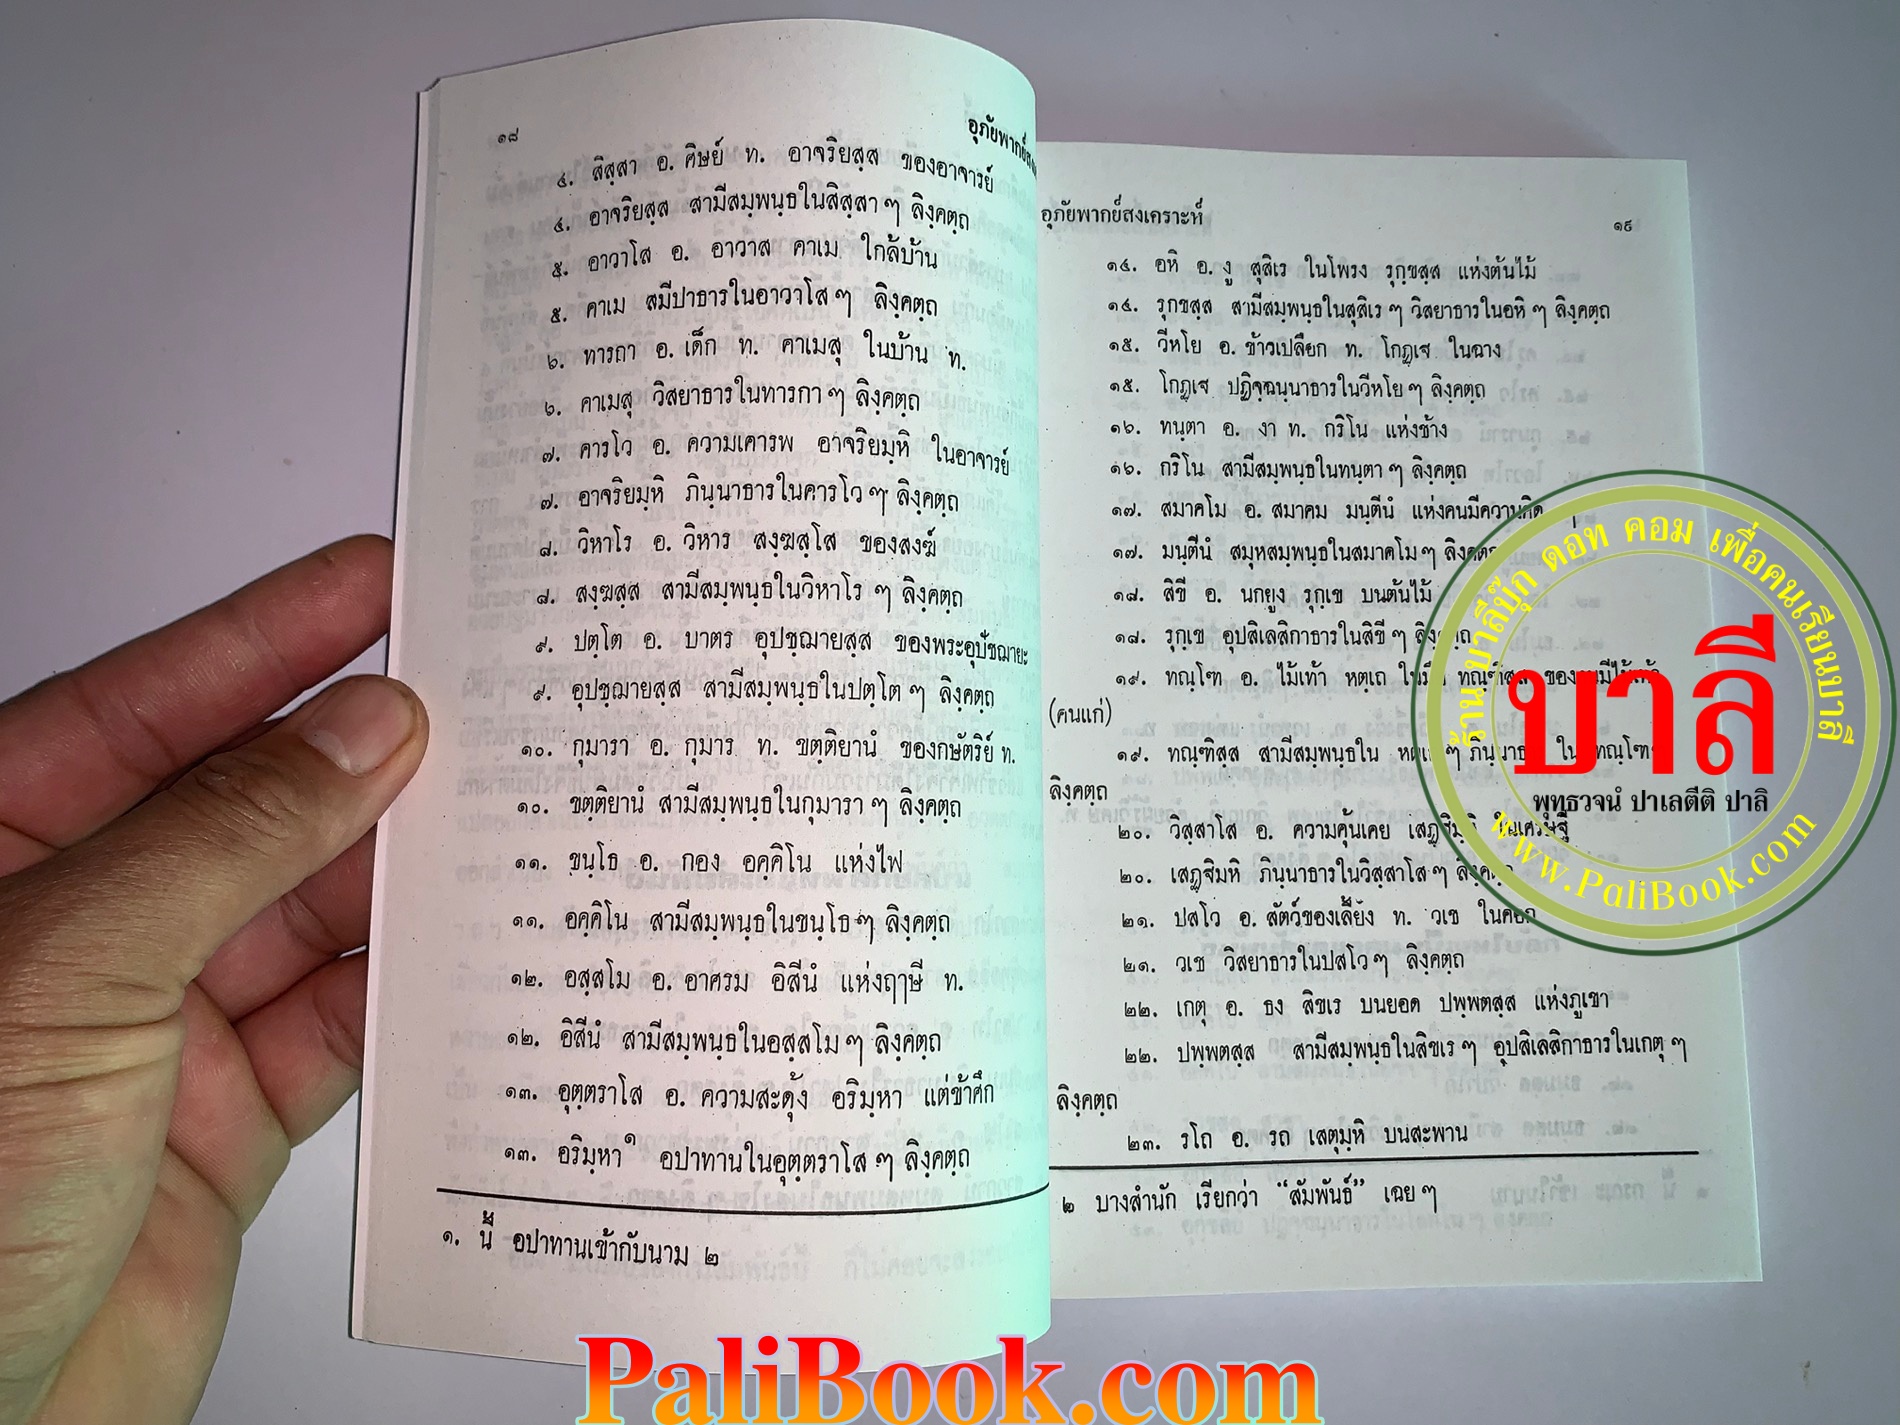 ๑๘
อุภัยพากย์
๔. สิสฺสา อ. ศิษย์ ท. อาจริยสฺส ของอาจารย์
๔. อาจริยสฺส สามีสมฺพนฺธในสิสฺสา ๆ ลิงฺคตฺถ
๕. อาวาโส อ. อาวาส คาเม ใกล้บ้าน
๕. คาเม สมีปาธารในอาวาโส ๆ ลิงฺคตฺถ
๖. ทารถา อ. เด็ก ท. คาเมสุ ในบ้าน ท.
๖. คาเมสุ วิสยาธารในทารกา ๆ ลิงฺคตฺถ
๗. คารโว อ. ความเคารพ อาจริยมฺหิ ในอาจารย์
๗. อาจริยมฺหิ ภินฺนาธารในคารโว ๆ ลิงฺคตฺถ
๘. วิหาโร อ. วิหาร สงฺฆสฺโส ของสงฆ์
๘. สงฺฆสฺส สามีสมฺพนฺธในวิหาโร ๆ ลิงฺคตฺถ
๙. ปตฺโต อ. บาตร อุปชฺฌายสฺส ของพระอุปัชฌายะ
๙. อุปชฺฌายสฺส สามีสมฺพนฺธในปตฺโต ๆ ลิงฺคตฺถ
๑๐. กุมารา อ. กุมาร ท. ขตฺติยานํ ของกษัตริย์ ท.
๑๐. ขตฺติยานํ สามีสมฺพนฺธในกุมารา ๆ ลิงฺคตฺถ
๑๑. ขนฺโธ อ. กอง อคฺคิโน แห่งไฟ
๑๑. อคฺคิโน สามีสมฺพนฺธในขนฺโธ ๆ ลิงฺคตฺถ
๑๒. อสฺสโม อ. อาศรม อิสีนํ แห่งฤๅษี ท.
๑๒. อิสีนํ สามีสมฺพนฺธในอสฺสโม ๆ ลิงฺคตฺถ
๑๓. อุตฺตราโส อ. ความสะดุ้ง อริมฺหา แต่ข้าศึก
๑๓. อริมฺหา ๑ อปาทานในอุตฺตราโส ๆ ลิงฺคตฺถ
๑. นี้ อปาทานเข้ากับนาม ๒
อุภัยพากย์สงเคราะห์ ๑๙
๑๔. อหิ อ. งู สุสิเร ในโพรง รุกฺขสฺส แห่งต้นไม้
๑๔. รุกขสฺส สามีสมฺพนฺธในสุสิเร ๆ วิสยาธารในอหิ ๆ ลิงฺคตฺถ
๑๕. วีหโย อ. ข้าวเปลือก ท. โกฏฺเฐ ในฉาง
๑๕. โกฏฺเฐ ปฏิจฺฉนฺนาธารในวีหโย ๆ ลิงฺคตฺถ
๑๖. ทนฺตา อ. งา ท. กริโน แห่งช้าง
๑๖. กริโน สามีสมฺพนฺธในทนฺตา ๆ ลิงฺคตฺถ
๑๗. สมาคโม อ. สมาคม มนฺตีนํ แห่งคนมีความคิด
๑๗. มนฺตีนํ สมุหสมฺพนฺธในสมาคโม ๆ ลิงฺคตฺถ
๑๘. สิขี อ. นกยูง รุกฺเข บนต้นไม้
๑๘. รุกฺเข อุปสิเลสิกาธารในสิขี ๆ ลิงฺคตฺถ
๑๙. ทณฺโฑ อ. ไม้เท้า หตฺเถ ในมือ ทณฺฑิสฺส ของคนมีไม้เท้า
(คนแก่)
๑๙. ทณฺฑิสฺส สามีสมฺพนฺธใน หตฺเถ ๆ ภินฺนาธารใน ทณฺโฑ
ลิงฺคตฺถ
๒๐. วิสฺสาโส อ. ความคุ้นเคย เสฏฺฐิมฺหิ ในเศรษฐี
๒๐. เสฏฺฐิมหิ ภินฺนาธารในวิสฺสาโส ๆ ลิงฺคตฺถ
๒๑. ปสโว อ. สัตว์ของเลี้ยง ท. วเช ในคอก
๒๑. วเช วิสยาธารในปสโว ๆ ลิงฺคตฺถ
๒๒. เกตุ อ. ธง สิขเร บนยอด ปพฺพตสฺส แห่งภูเขา
๒๒. ปพฺพตสฺส สามีสมฺพนฺธในสิขเร ๆ อุปสิเลสิกาธารในเกตุ ๆ
ลิงฺคตฺถ
๒๓. รโถ อ. รถ เสตุมฺหิ บนสะพาน
๒ บางสำนัก เรียกว่า “สัมพันธ์” เฉย ๆ
ร้านบาลีบุ๊ก ดอท คอม เพื่อคนเรียนบาลี
บาลี
พุทฺธวจนํ ปาเลตีติ ปาลิ
www.PaliBook.com
PaliBook.com